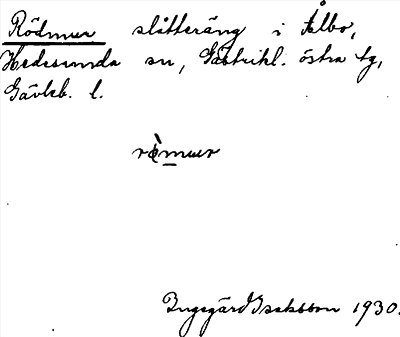 Rödmur slåtteräng i Ålbo,
Hedesunda sn, Gästrikl. östra tg,
Gävleb. l.
Ingegärd Isaksson 1930.